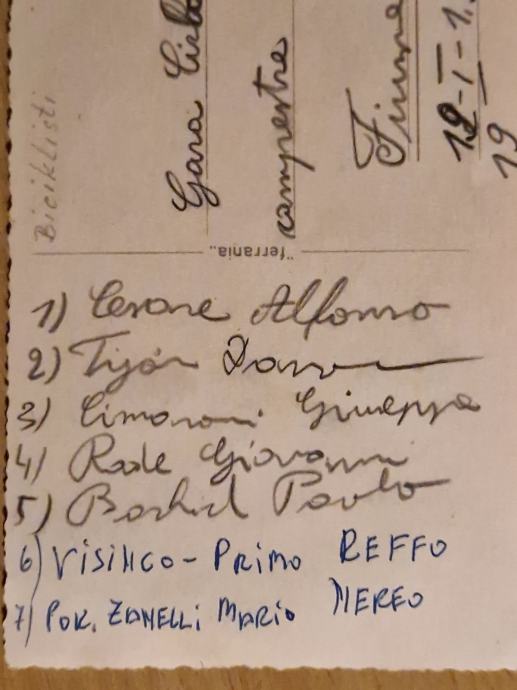 Biciklisti
Gara Cicl
campestre
Fiume
19-I-1
19
"ferrania"
1) Cesare Alfonso
2)
3) Cimoroni Giuseppe
4) Rade Giovanni
5) Paolo
6) VISINCO - PRIMO REFFO
7) POR. ZANELLI MARIO NEREO